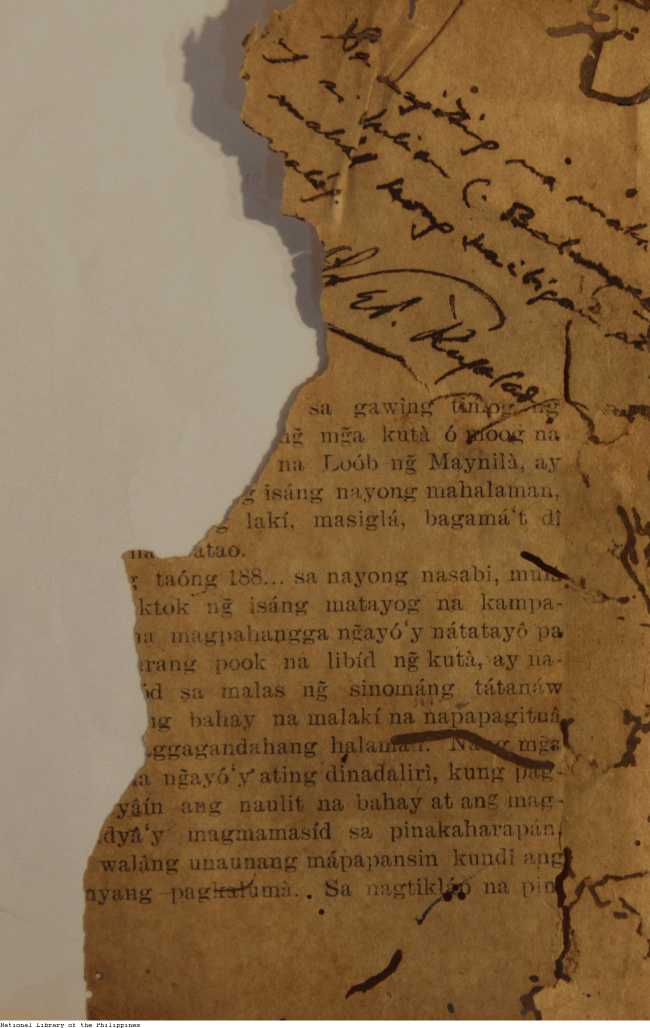 Sa
na
C.
mahal kong kaibigan
sa gawing timog ng̃
ng̃ mg̃a kutà ó moog na
na Loób ng̃ Maynilà, ay
g isáng nayong mahalaman,
g lakí, masiglá, bagamá't dî
na atao.
g taóng 188... sa nayong nasabi, mula
ktok ng̃ isáng matayog na kampa-
na magpahangga ng̃ayó'y nátatayô pa
rang pook na libíd ng̃ kutà, ay na-
ód sa malas ng̃ sinománg tátanáw
ng bahay na malakí na napapagituâ
ggagandahang halaman. Nang mg̃a
a ng̃ayó'y ating dinadalirì, kung pag-
yâín ang naulit na bahay at ang mag-
dyâ'y magmamasíd sa pinakaharapán,
walâng unaunang mápapansin kundî ang
nyang pagkalumà. Sa nagtikláp na pin
National Library of the Philippines